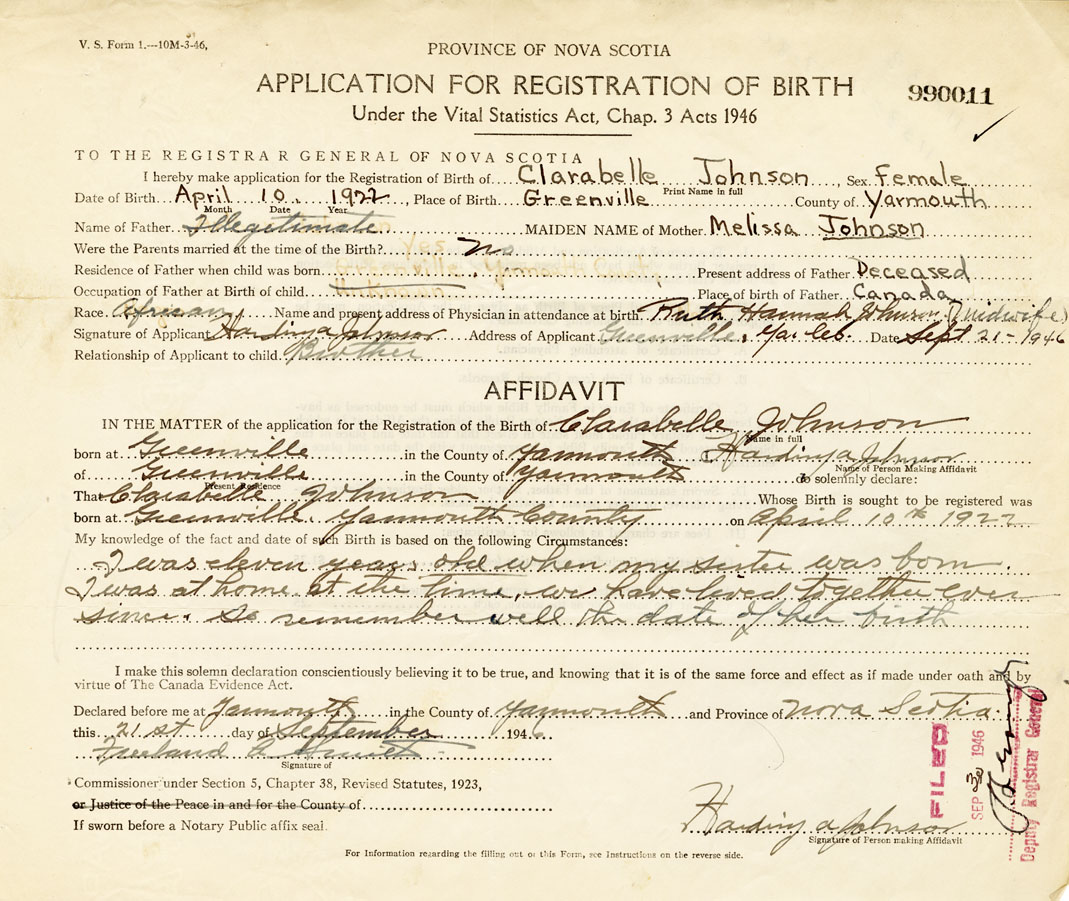 V. S. Form 1.---10M-3-46,
PROVINCE OF NOVA SCOTIA
APPLICATION FOR REGISTRATION OF BIRTH
990011
Under the Vital Statistics Act, Chap. 3 Acts 1946
TO THE REGISTRAR GENERAL OF NOVA SCOTIA
I hereby make application for the Registration of Birth of Clarabelle Johnson, Sex Female
Print Name in full
Date of Birth April 10, 1922, Place of Birth Greenville County of Yarmouth
Month Date Year
Name of Father Illegitimate MAIDEN NAME of Mother Melissa Johnson
Were the Parents married at the time of the Birth? Yes No
Residence of Father when child was born Greenville, Yarmouth County, Present address of Father Deceased
Occupation of Father at Birth of child Unknown Place of birth of Father Canada
Race. African Name and present address of Physician in attendance at birth Ruth Hannah Johnson (Midwife)
Signature of Applicant Harding a Johnson Address of Applicant Greenville, Yar. Co. Date Sept 21-1946
Relationship of Applicant to child Brother
AFFIDAVIT
IN THE MATTER of the application for the Registration of the Birth of Clarabelle Johnson
Name in full
born at Greenville in the County of Yarmouth I Harding a Johnson
Name of Person Making Affidavit
of Greenville in the County of Yarmouth do solemnly declare:
Present Residence
That Clarabelle Johnson Whose Birth is sought to be registered was
born at Greenville Yarmouth County on April 10th 1922
My knowledge of the fact and date of such Birth is based on the following Circumstances:
I was eleven years old when my sister was born.
I was at home at the time, we have lived together ever
since. So remember well the date of her birth
I make this solemn declaration conscientiously believing it to be true, and knowing that it is of the same force and effect as if made under oath and by
virtue of The Canada Evidence Act.
Declared before me at Yarmouth in the County of Yarmouth and Province of Nova Scotia
this 21st day of September 1946
Freeland A
Signature of
Commissioner under Section 5, Chapter 38, Revised Statutes, 1923,
or Justice of the Peace in and for the County of
If sworn before a Notary Public affix seal.
Harding a Johnson
Signature of Person making Affidavit
For Information regarding the filling out of this Form, see Instructions on the reverse side.
FILED
SEP 1946
Deputy Registrar General